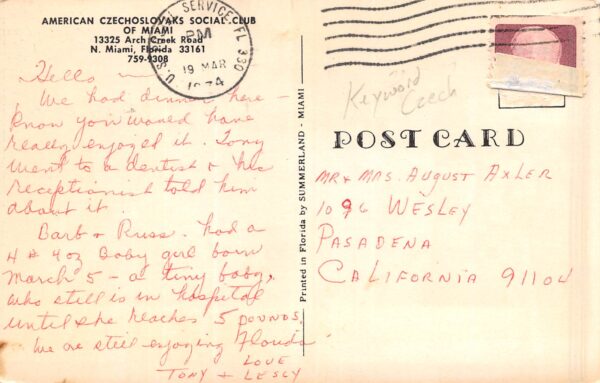 AMERICAN CZECHOSLOVAKS SOCIAL CLUB
OF MIAMI
13325 Arch Creek Road
N. Miami, Florida 33161
759-9308
U.S. POSTAL SERVICE, FL 330
PM
19 MAR
1974
Keyword
Czech
Hello —
We had dinner here —
know you would have
really enjoyed it. Tony
went to a dentist & his
receptionist told him
about it.
Barb & Russ. had a
4 # 4 oz Baby girl born
March 5 — a tiny baby,
who still is in hospital
until she reaches 5 POUNDS.
We are still enjoying Florida
LOVE
TONY + LESCY
Printed in Florida by SUMMERLAND - MIAMI
POST CARD
MR & MRS. AUGUST AXLER
1096 WESLEY
PASADENA
CALIFORNIA 91104